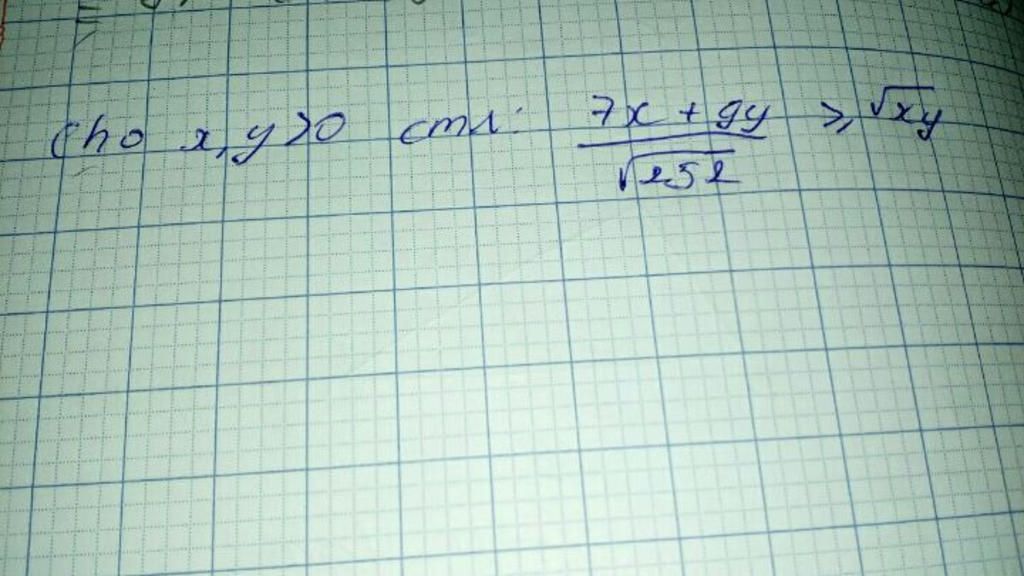 Cho x, y > 0 cmr: \frac{7x + 9y}{\sqrt{252}} ≥ \sqrt{xy}